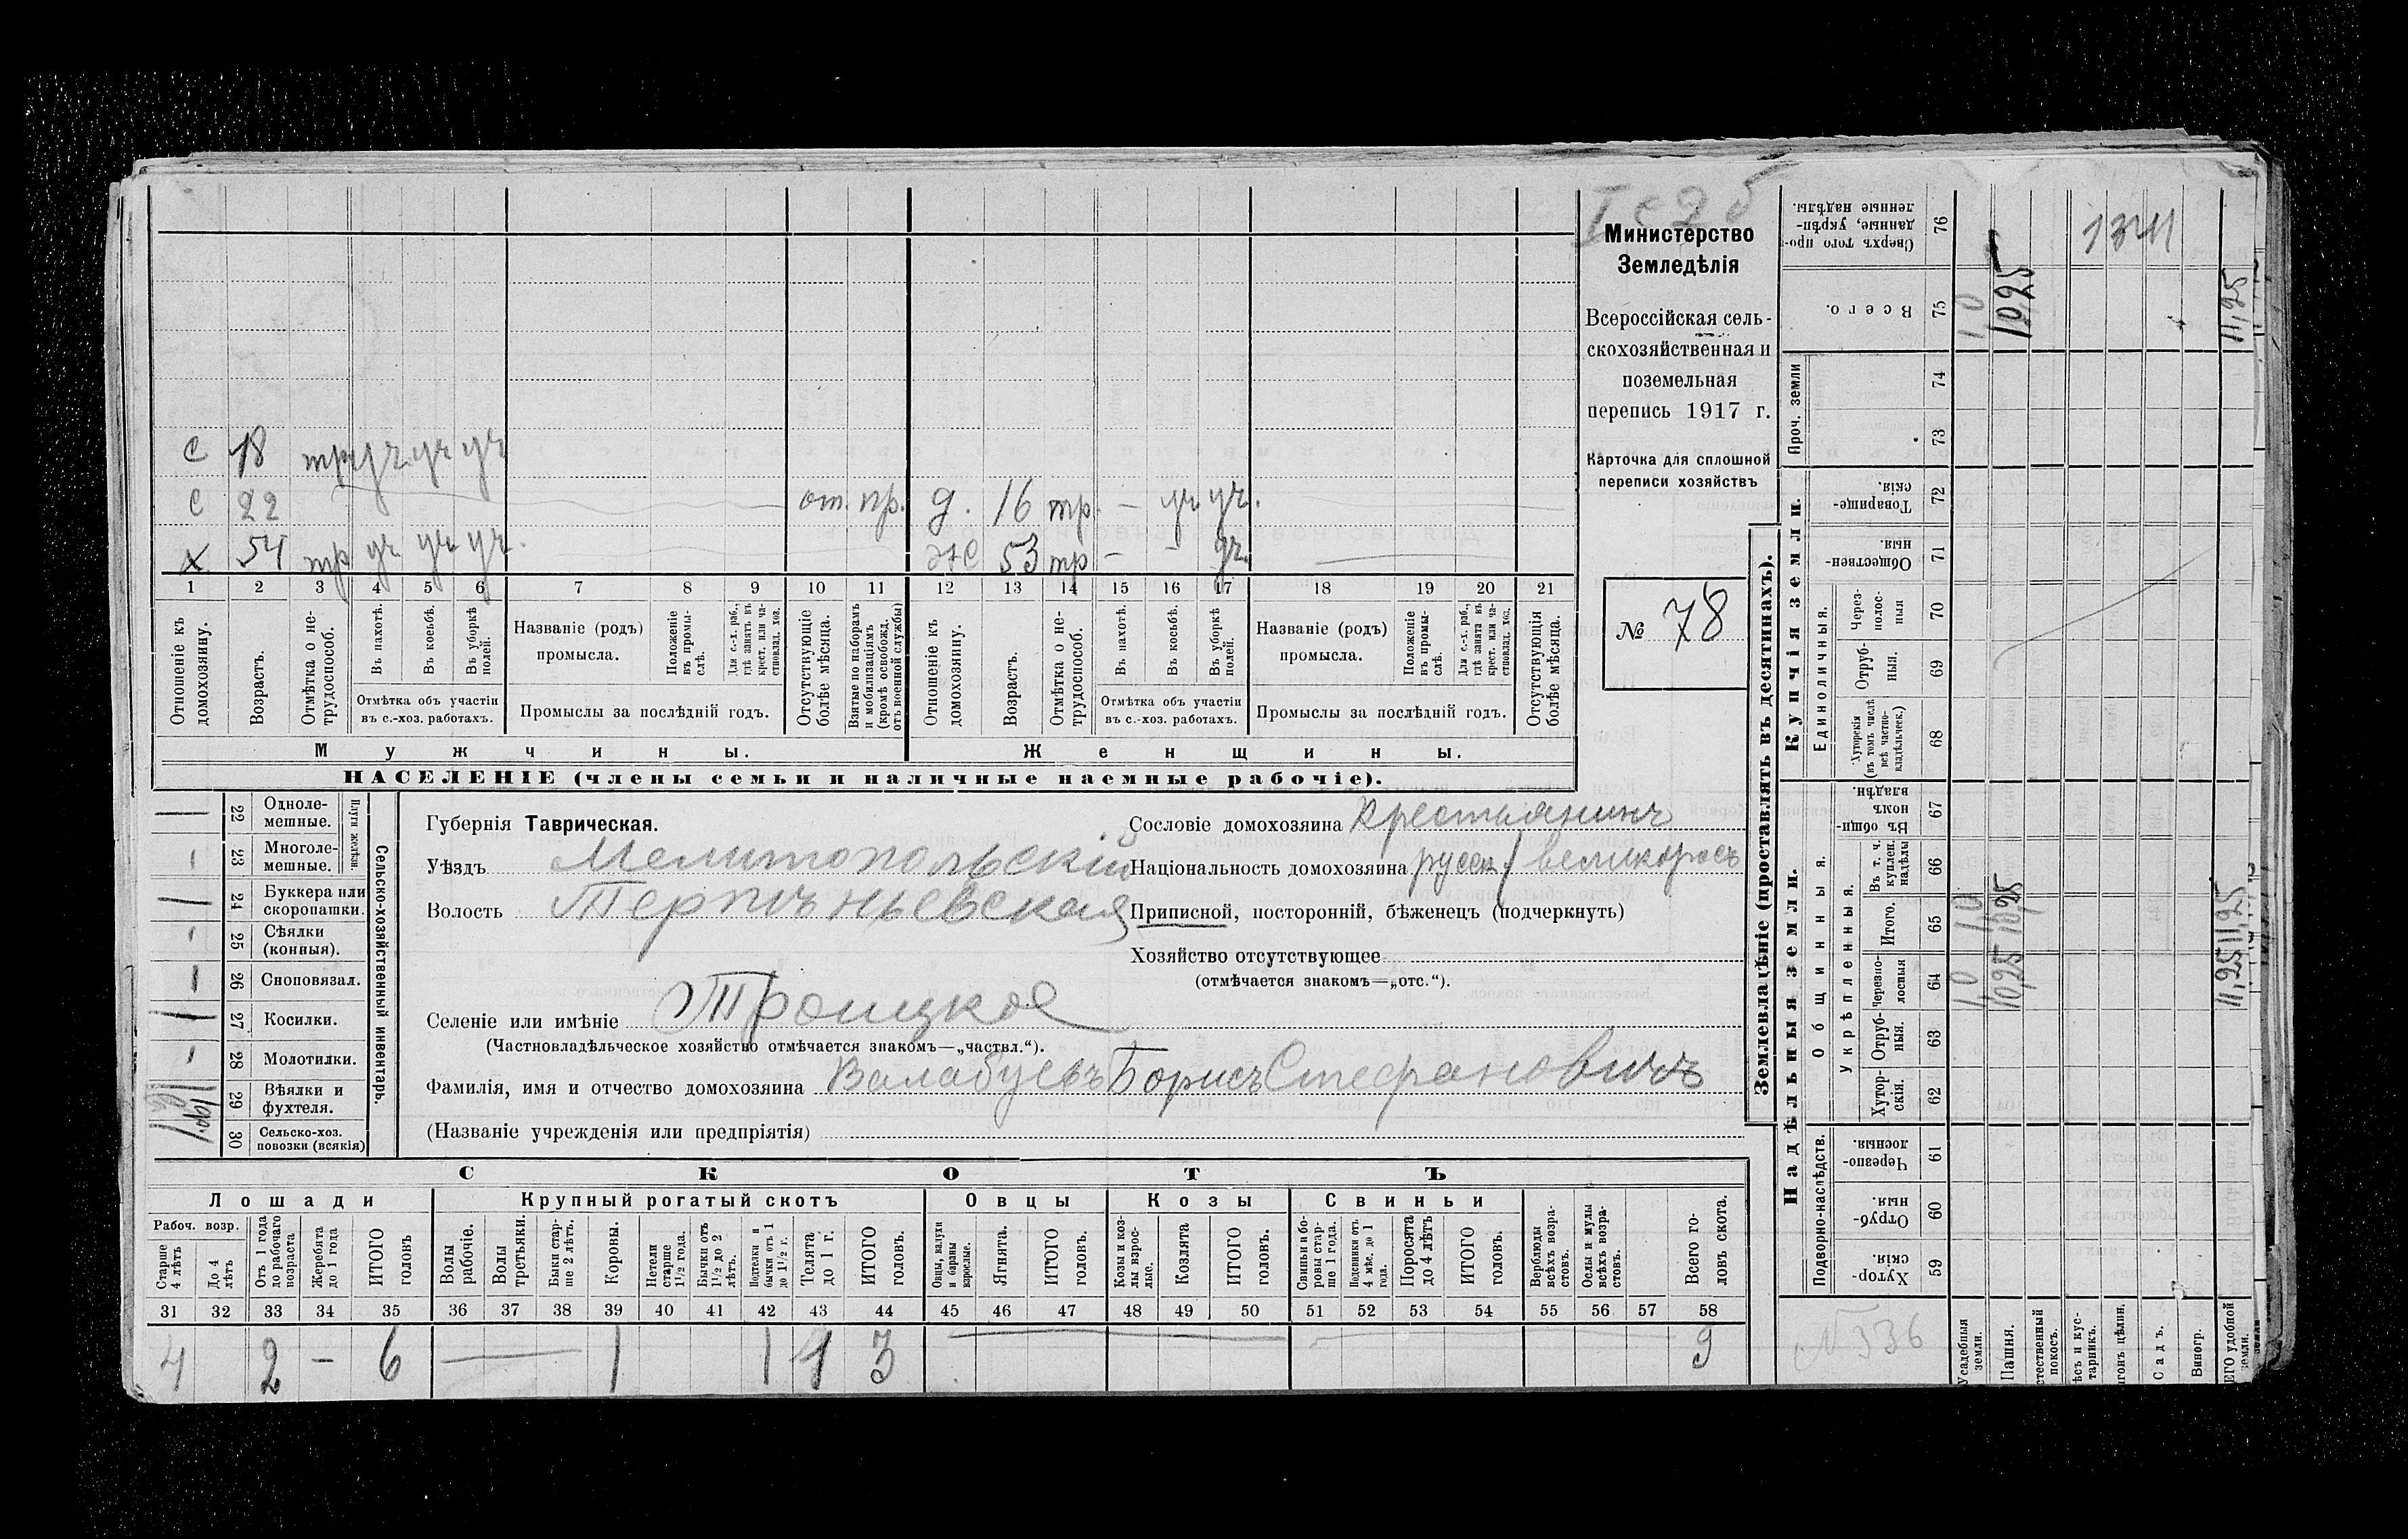 Министерство
Земледѣлія
Всероссійская сель-
скохозяйственная и
поземельная
перепись 1917 г.
Карточка для сплошной
переписи хозяйствъ
№ 78
с 18 тр уч уч уч
с 22 от. пр. д. 16 тр. — уч уч.
х 54 тр уч уч уч. ж 53 тр — — уч.
1 2 3 4 5 6 7 8 9 10 11 12 13 14 15 16 17 18 19 20 21
Отношеніе къ домохозяину.
Возрастъ.
Отмѣтка о не-трудоспособ.
Въ пахотѣ.
Въ косьбѣ.
Въ уборкѣ полей.
Отмѣтка объ участіи въ с.-хоз. работахъ.
Названіе (родъ) промысла.
Положеніе въ промы-слѣ.
Для с.-х. раб., гдѣ занятъ въ крест. или ча-стновлад. хоз.
Промыслы за послѣдній годъ.
Отсутствующіе болѣе мѣсяца.
Взятые по наборамъ и мобилизаціямъ (кромѣ освобожд. отъ военной службы)
Отношеніе къ домохозяину.
Возрастъ.
Отмѣтка о не-трудоспособ.
Въ пахотѣ.
Въ косьбѣ.
Въ уборкѣ полей.
Отмѣтка объ участіи въ с.-хоз. работахъ.
Названіе (родъ) промысла.
Положеніе въ промы-слѣ.
Для с.-х. раб., гдѣ занята въ крест. или ча-стновлад. хоз.
Промыслы за послѣдній годъ.
Отсутствующія болѣе мѣсяца.
Мужчины. Женщины.
НАСЕЛЕНІЕ (члены семьи и наличные наемные рабочіе).
Сельско-хозяйственный инвентарь.
Плуги желѣзн.
22 Одноле-мешные.
23 Многоле-мешные.
24 Буккера или скоропашки.
25 Сѣялки (конныя).
26 Сноповязал.
27 Косилки.
28 Молотилки.
29 Вѣялки и фухтеля.
30 Сельско-хоз. повозки (всякія)
Губернія Таврическая.
Уѣздъ Мелитопольскій
Волость Терпѣньевская
Селеніе или имѣніе Троицкое
(Частновладѣльческое хозяйство отмѣчается знакомъ—„частвл.“).
Фамилія, имя и отчество домохозяина Валабуевъ Борисъ Стефановичъ
(Названіе учрежденія или предпріятія)
Сословіе домохозяина Крестьянинъ
Національность домохозяина русск / великоросъ
Приписной, посторонній, бѣженецъ (подчеркнуть)
Хозяйство отсутствующее
(отмѣчается знакомъ—„отс.“).
СКОТЪ
Лошади Крупный рогатый скотъ Овцы Козы Свиньи
Рабоч. возр.
Старше 4 лѣтъ
До 4 лѣтъ
Отъ 1 года до рабочаго возраста
Жеребята до 1 года
ИТОГО головъ
Волы рабочіе.
Волы третьяки.
Быки стар-ше 2 лѣтъ.
Коровы.
Нетели старше 1½ года.
Бычки отъ 1½ до 2 лѣтъ.
Подтелки и бычки отъ 1 до 1½ г.
Телята до 1 г.
ИТОГО головъ.
Овцы, валухи и бараны взрослые.
Ягнята.
ИТОГО головъ.
Козы и коз-лы взрос-лые.
Козлята
ИТОГО головъ.
Свиньи и бо-ровы стар-ше 1 года.
Подсвинки отъ 4 мѣс. до 1 года.
Поросята до 4 лѣтъ
ИТОГО головъ.
Верблюды всѣхъ возра-стовъ.
Ослы и мулы всѣхъ возра-стовъ.
Всего го-ловъ скота.
31 32 33 34 35 36 37 38 39 40 41 42 43 44 45 46 47 48 49 50 51 52 53 54 55 56 57 58
4 2 — 6 — 1 1 1 3 9
Землевладѣніе (проставлять въ десятинахъ).
Надѣльныя земли. Купчія земли.
Подворно-наслѣдств.
Общинныя.
Укрѣпленныя.
Единоличныя.
Проч. земли
Сверхъ того про-данные, укрѣп-ленные надѣлы. 76
Всего. 75
74
73
Товарище-скія. 72
Обществен-ныя. 71
Через-полос-ныя 70
Отруб-ныя. 69
Хуторскія (въ томъ числѣ всѣ частно-владѣльческ.) 68
Въ общин-номъ владѣн. 67
Въ т. ч. куплен. надѣлы 66
Итого. 65
Черезпо-лосныя 64
Отруб-ныя. 63
Хутор-скія. 62
Черезпо-лосныя. 61
Отруб-ныя. 60
Хутор-скія. 59
Усадебныя земли. 1,0 1,0 1,0
Пашня. 10,25 10,25 10,25
стественный покосъ.
ѣсъ и кус-тарникъ.
гонъ цѣлин.
Садъ.
Виногр.
ЕГО удобной земли. 11,25 11,25 11,25
1311
N 336